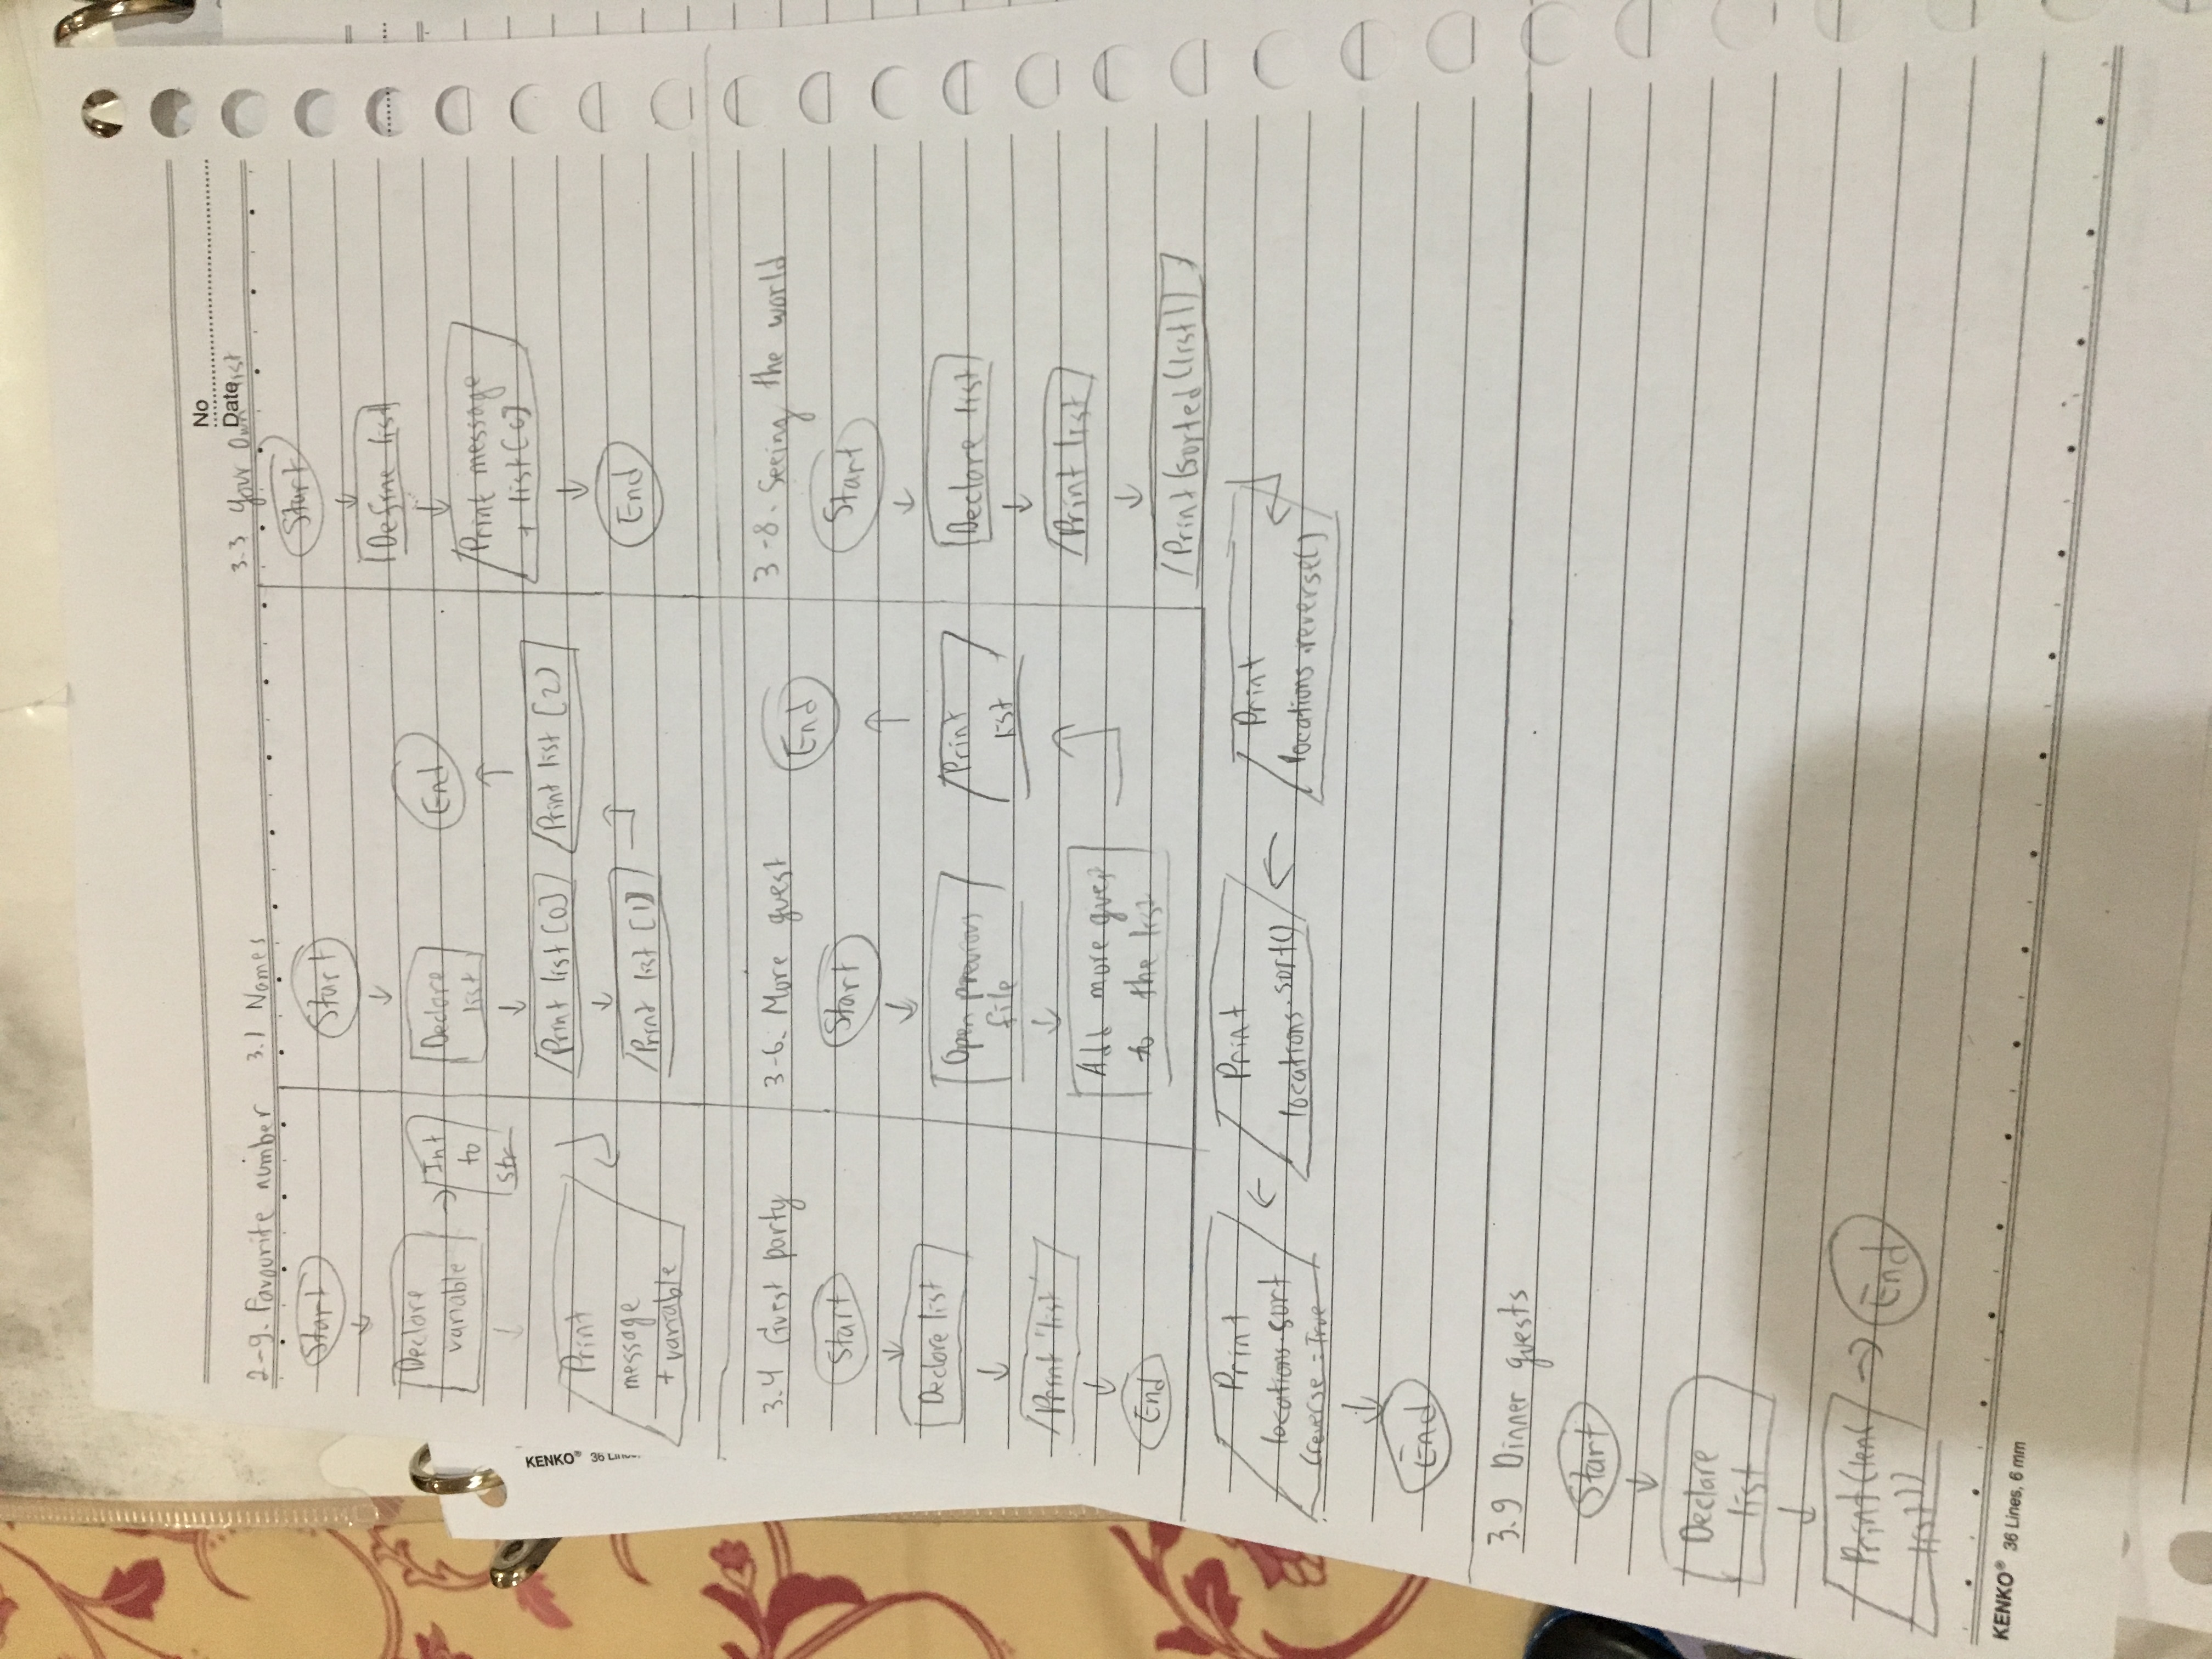 No
Date
2-9. Favourite number
Start
Declare
variable
Int
to
str
Print
message
+ variable
3.1 Names
Start
Declare
list
Print list [0]
Print list [1]
Print list [2]
End
3.3 Your Own list
Start
Define list
Print message
+ list[0]
End
KENKO® 36 Lines
3.4 Guest party
Start
Declare list
Print 'list'
End
3-6. More guest
Start
Open previous
file
Add more
to the list
Print
list
End
3-8. Seeing the world
Start
Declare list
Print list
Print (sorted (list))
Print
locations.reverse()
Print
locations.sort()
Print
locations.sort
(reverse = True
End
3.9 Dinner guests
Start
Declare
list
Print(len(
list))
End
KENKO® 36 Lines, 6 mm